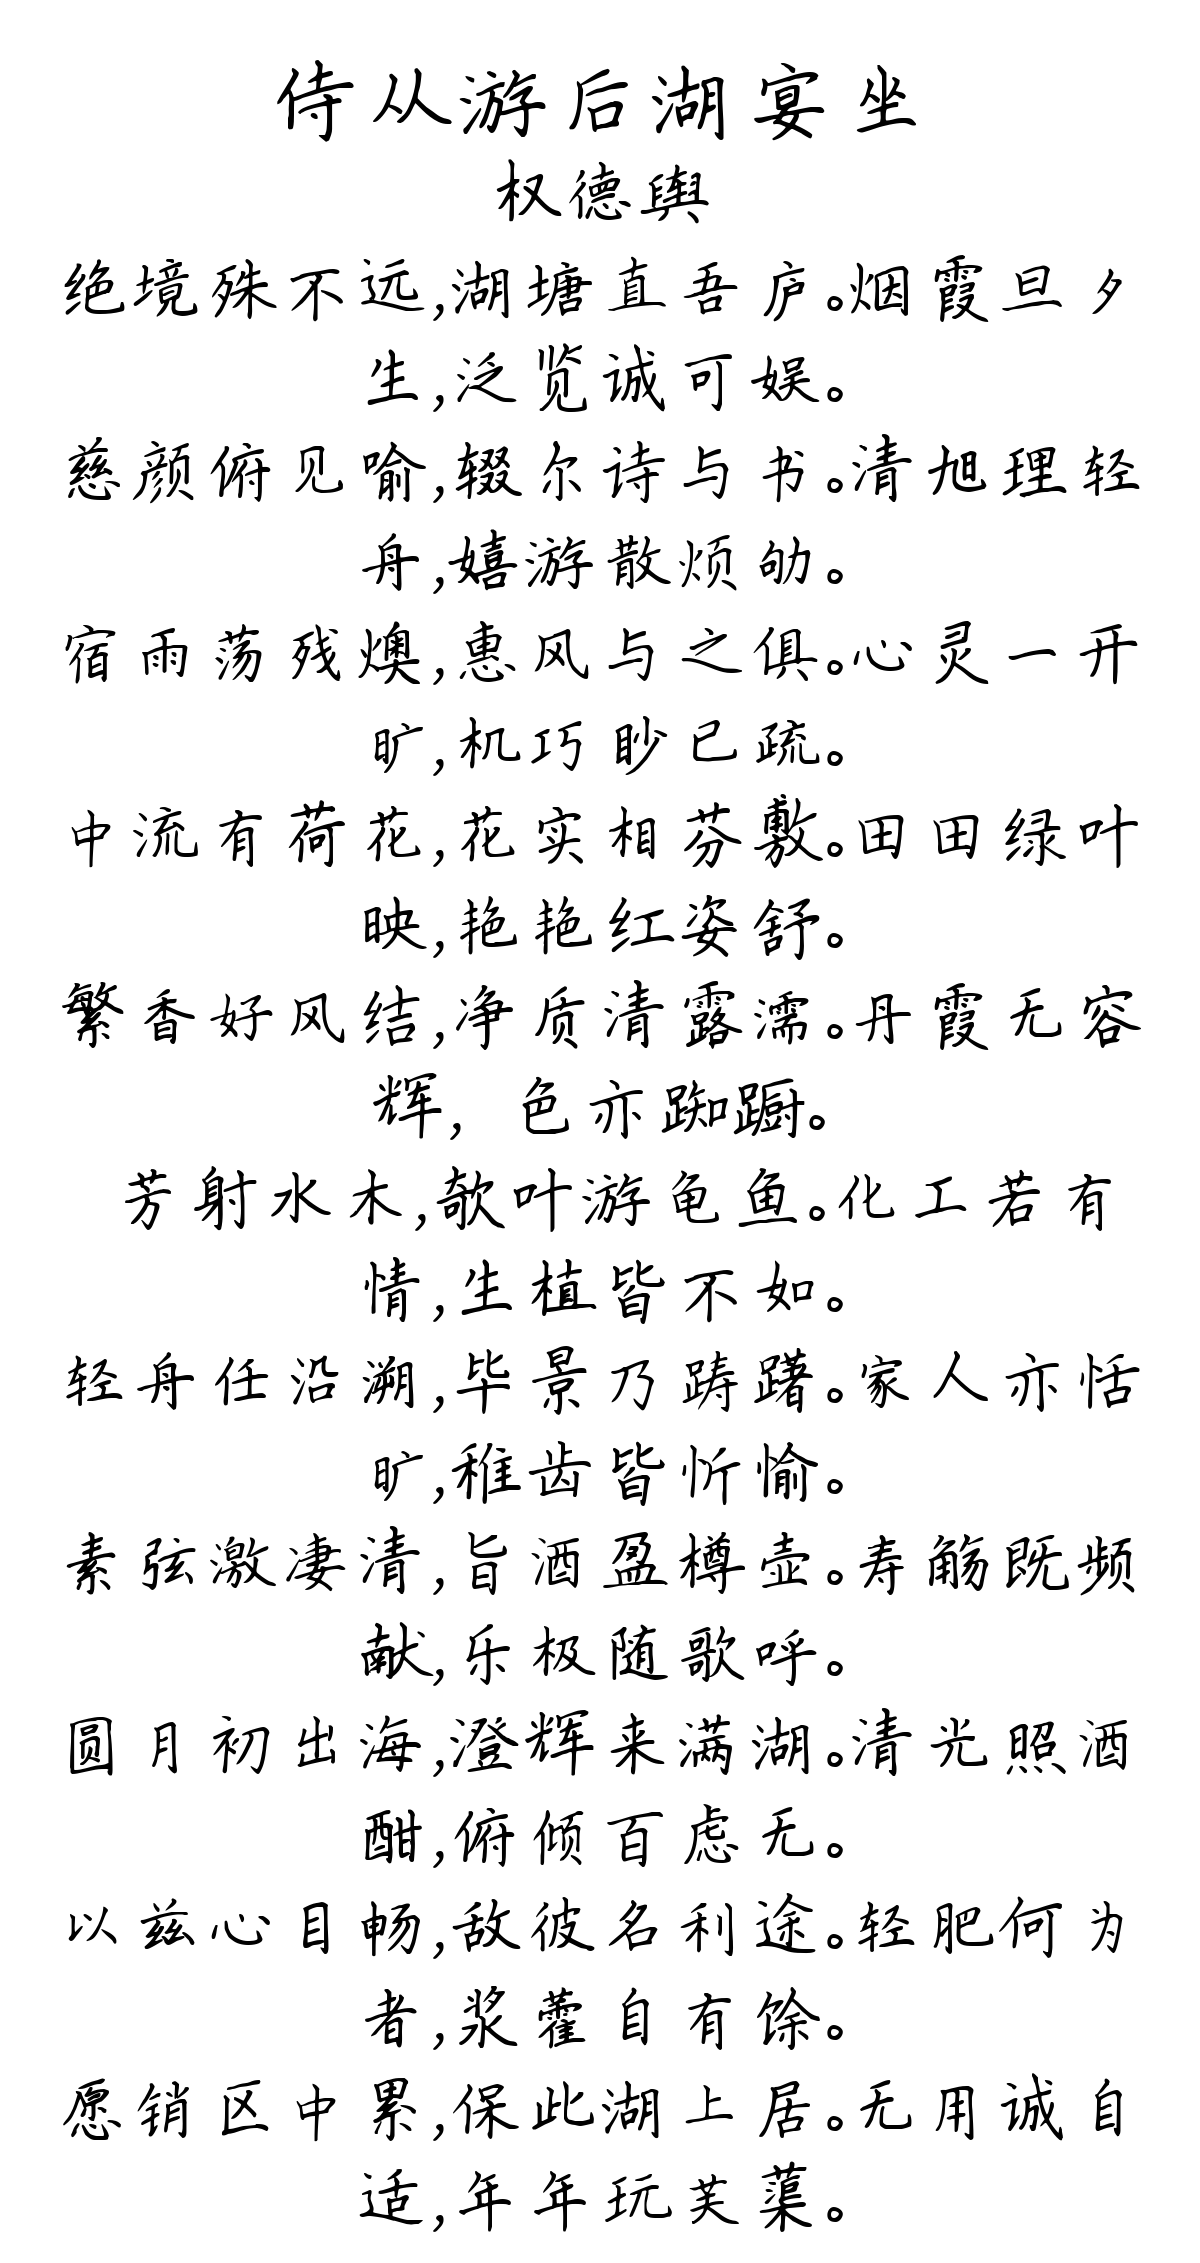 侍从游后湖宴坐
权德舆
绝境殊不远,湖塘直吾庐。烟霞旦夕
生,泛览诚可娱。
慈颜俯见喻,辍尔诗与书。清旭理轻
舟,嬉游散烦劬。
宿雨荡残燠,惠风与之俱。心灵一开
旷,机巧眇已疏。
中流有荷花,花实相芬敷。田田绿叶
映,艳艳红姿舒。
繁香好风结,净质清露濡。丹霞无容
辉, 色亦踟蹰。
芳射水木,欹叶游龟鱼。化工若有
情,生植皆不如。
轻舟任沿溯,毕景乃踌躇。家人亦恬
旷,稚齿皆忻愉。
素弦激凄清,旨酒盈樽壶。寿觞既频
献,乐极随歌呼。
圆月初出海,澄辉来满湖。清光照酒
酣,俯倾百虑无。
以兹心目畅,敌彼名利途。轻肥何为
者,浆藿自有馀。
愿销区中累,保此湖上居。无用诚自
适,年年玩芙蕖。